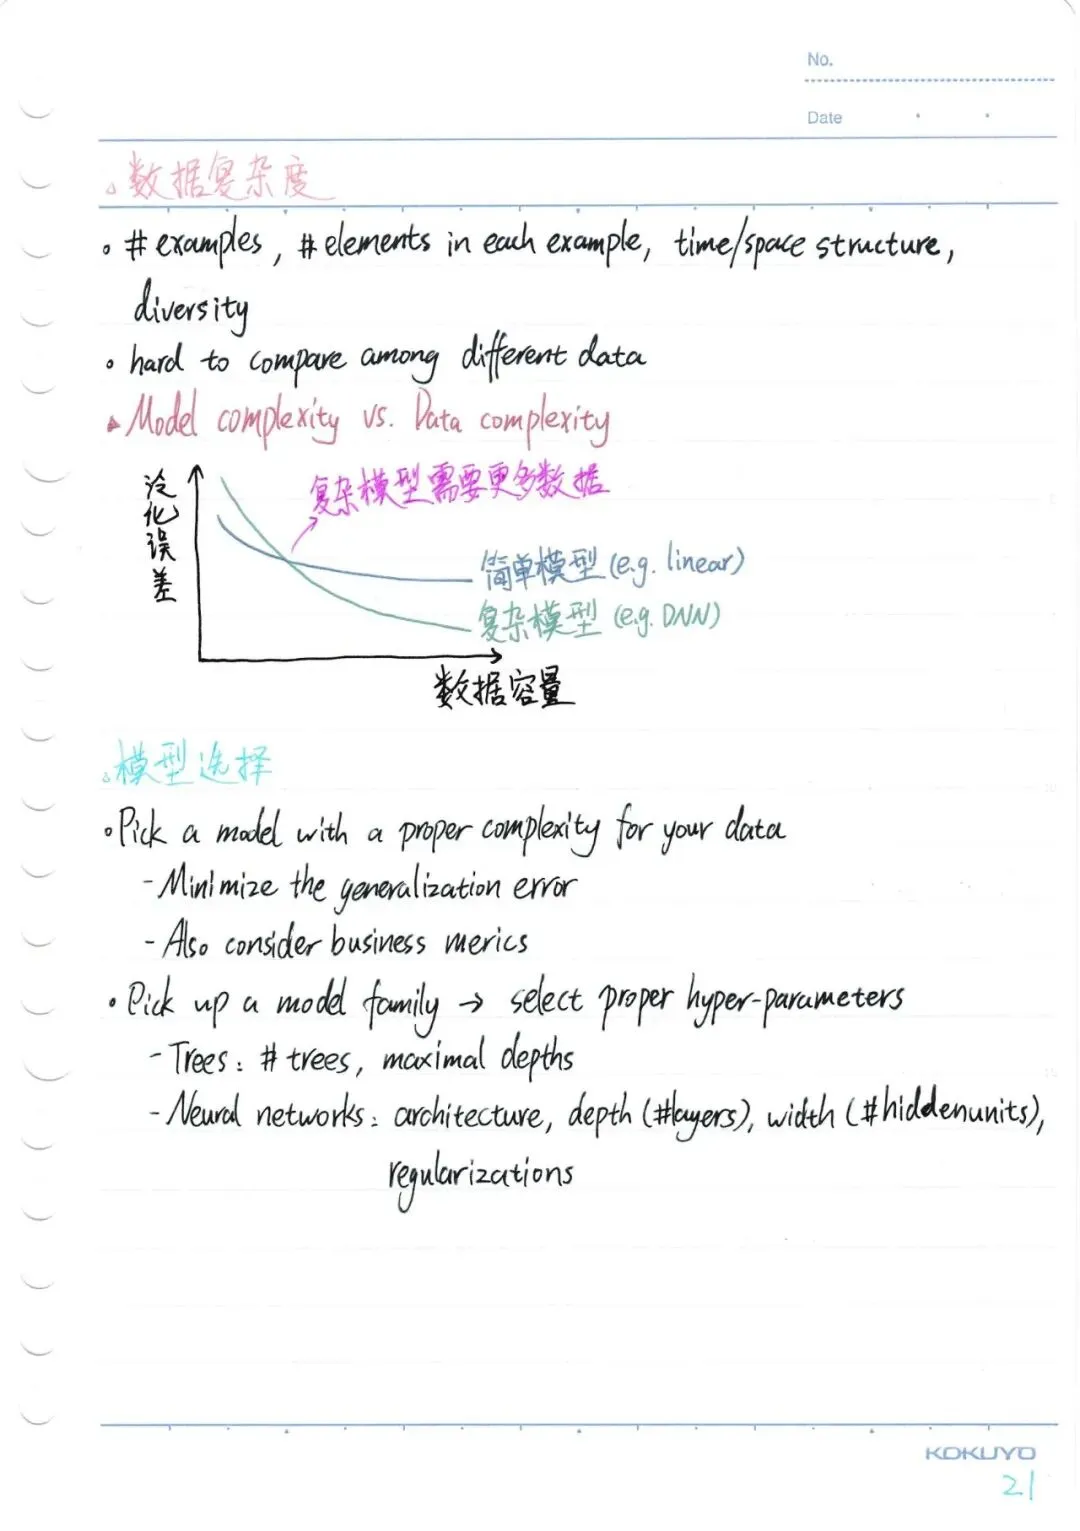 No.
Date
数据复杂度
# examples, # elements in each example, time/space structure,
diversity
hard to compare among different data
Model complexity vs. Data complexity
泛化误差
复杂模型需要更多数据
简单模型 (e.g. linear)
复杂模型 (e.g. DNN)
数据容量
模型选择
Pick a model with a proper complexity for your data
- Minimize the generalization error
- Also consider business merics
Pick up a model family → select proper hyper-parameters
- Trees: # trees, maximal depths
- Neural networks: architecture, depth (#layers), width (#hiddenunits),
regularizations
KOKUYO
21